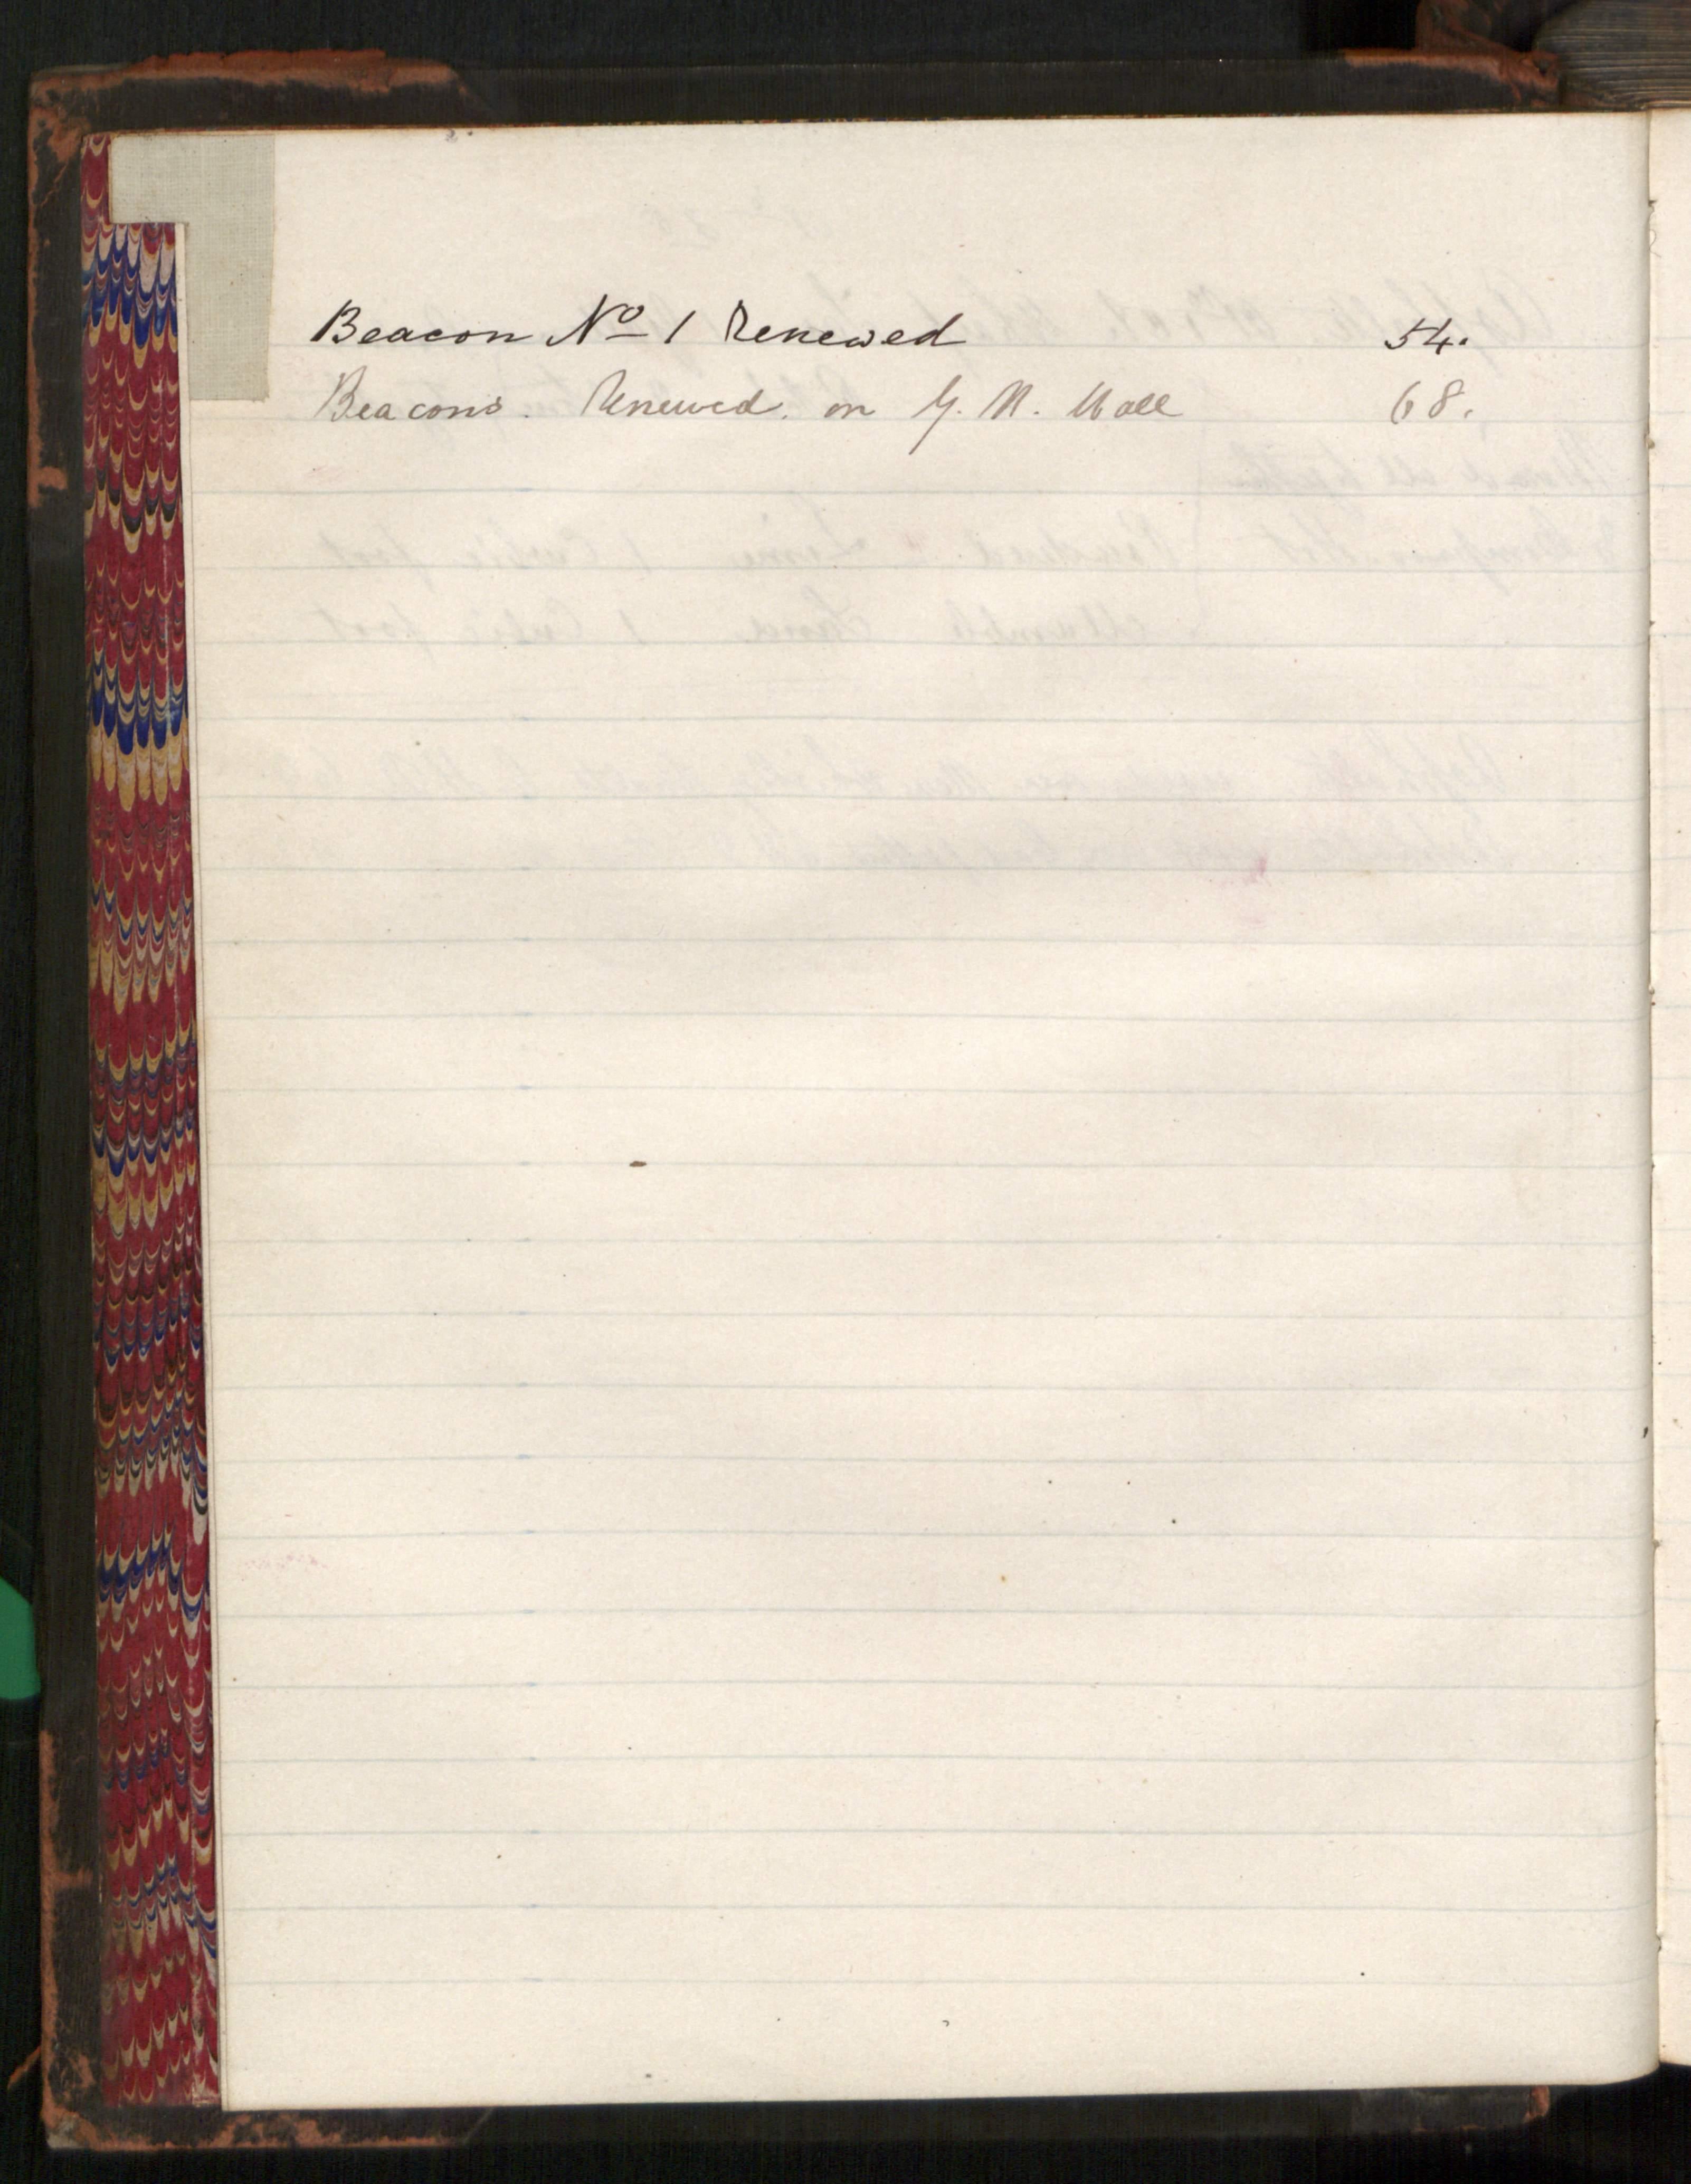 Beacon No 1 Renewed 54.
Beacons. Renewed. on G. N. Wall 68.